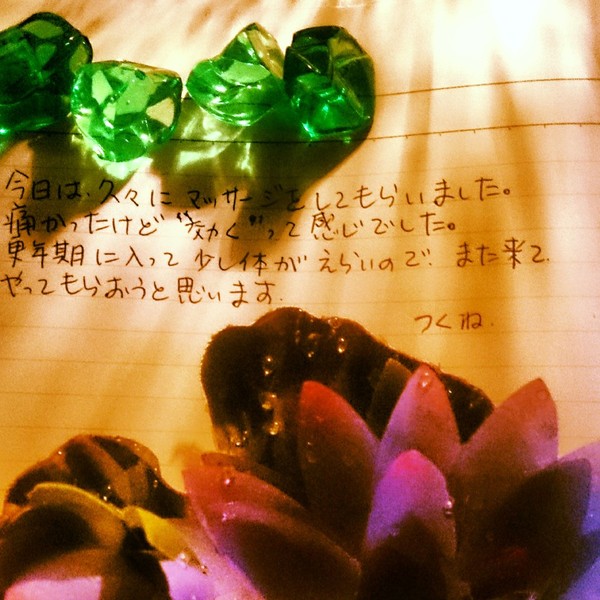 今日は、久々にマッサージをしてもらいました。
痛かったけど“効く”って感じでした。
更年期に入って少し体がえらいので、また来て、
やってもらおうと思います。
つくね.